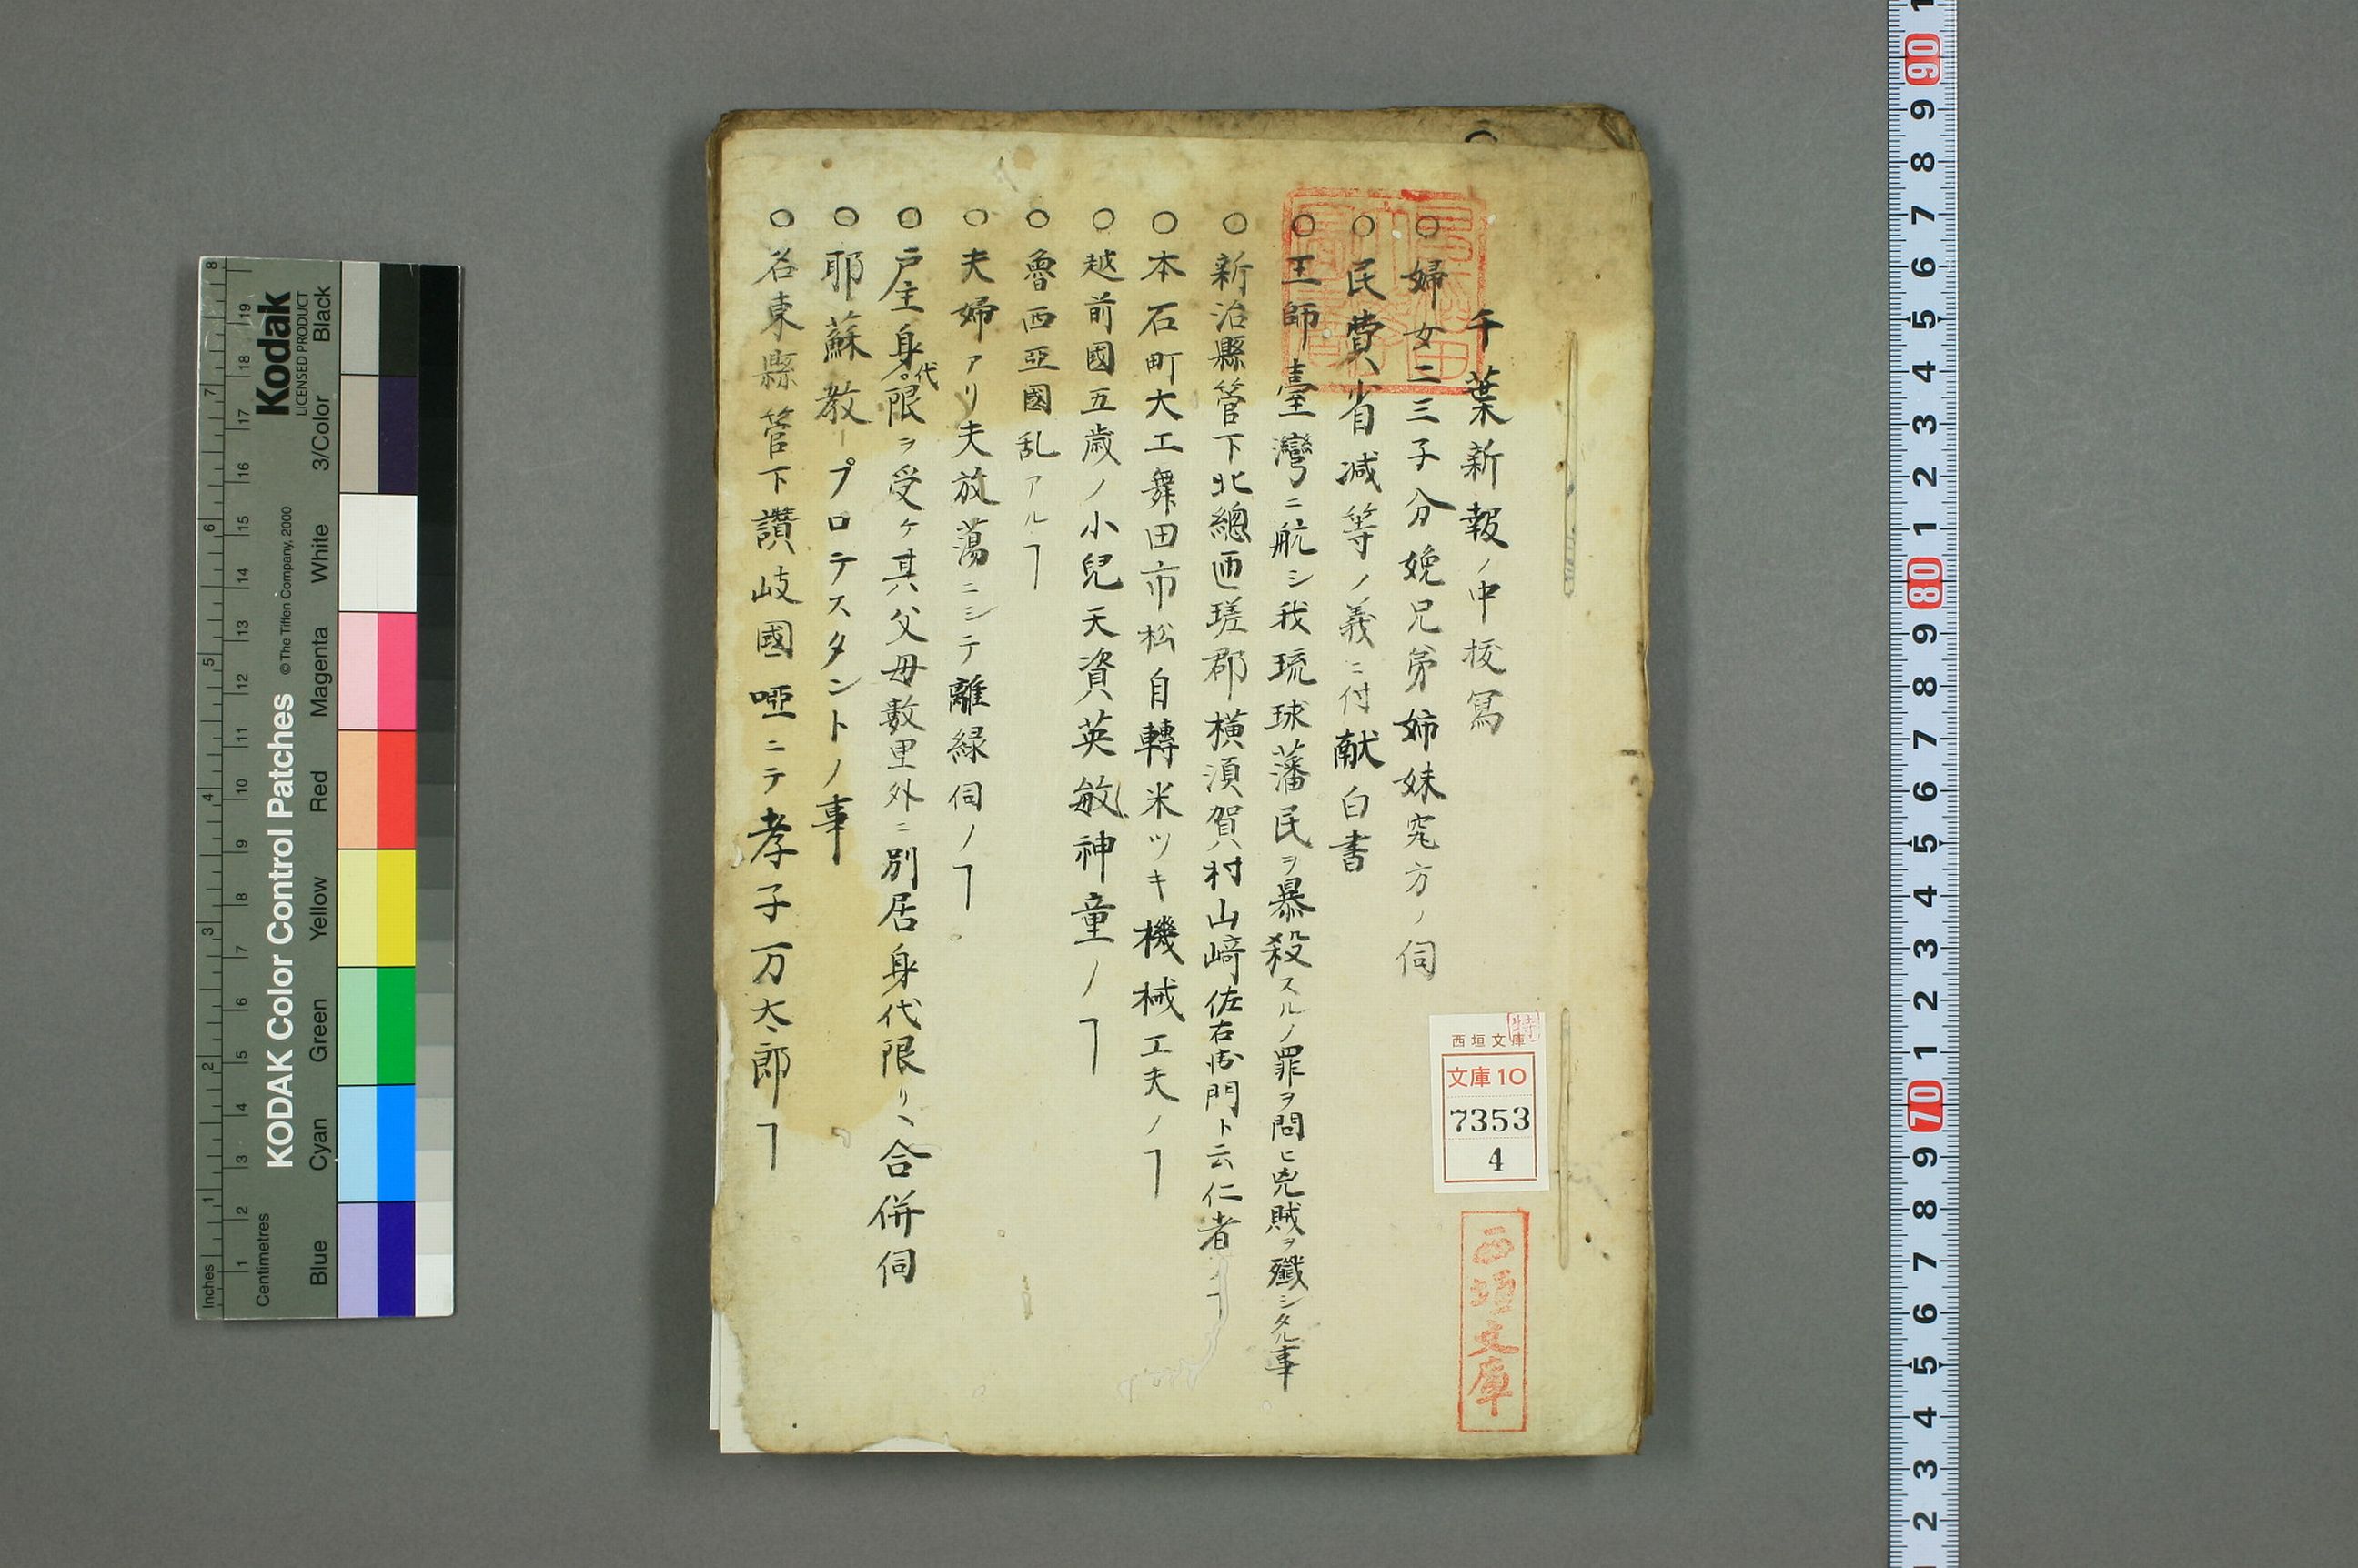 千葉新報ノ中抜冩
○婦女二三子分娩兄弟姉妹究方ノ伺
○民費省减等ノ義ニ付献白書
○王師臺灣ニ航シ我琉球藩民ヲ暴殺スルノ罪ヲ問ヒ兇賊ヲ殲シタル事
○新治縣管下北總匝瑳郡横湏賀村山﨑佐右衛門ト云仁者ノヿ
○本石町大工舞田市松自轉米ツキ機械工夫ノヿ
○越前國五歳ノ小兒天資英敏神童ノヿ
○魯西亞國乱アルヿ
○夫婦アリ夫放蕩ニシテ離緑伺ノヿ
○戸主身代限ヲ受ケ其父母數里外ニ別居身代限リヽ合併伺
○耶蘇教プロテスタントノ事
○名東縣管下讃岐國啞ニテ孝子万太郎ヿ
特
西垣文庫
文庫10
7353
4
西垣文庫
Kodak
LICENSED PRODUCT
KODAK Color Control Patches
© The Tiffen Company, 2000
Blue Cyan Green Yellow Red Magenta White 3/Color Black
Inches 1 2 3 4 5 6 7 8
Centimetres 1 2 3 4 5 6 7 8 9 10 11 12 13 14 15 16 17 18 19
90 9 8 7 6 5 4 3 2 1 80 9 8 7 6 5 4 3 2 1 70 9 8 7 6 5 4 3 2